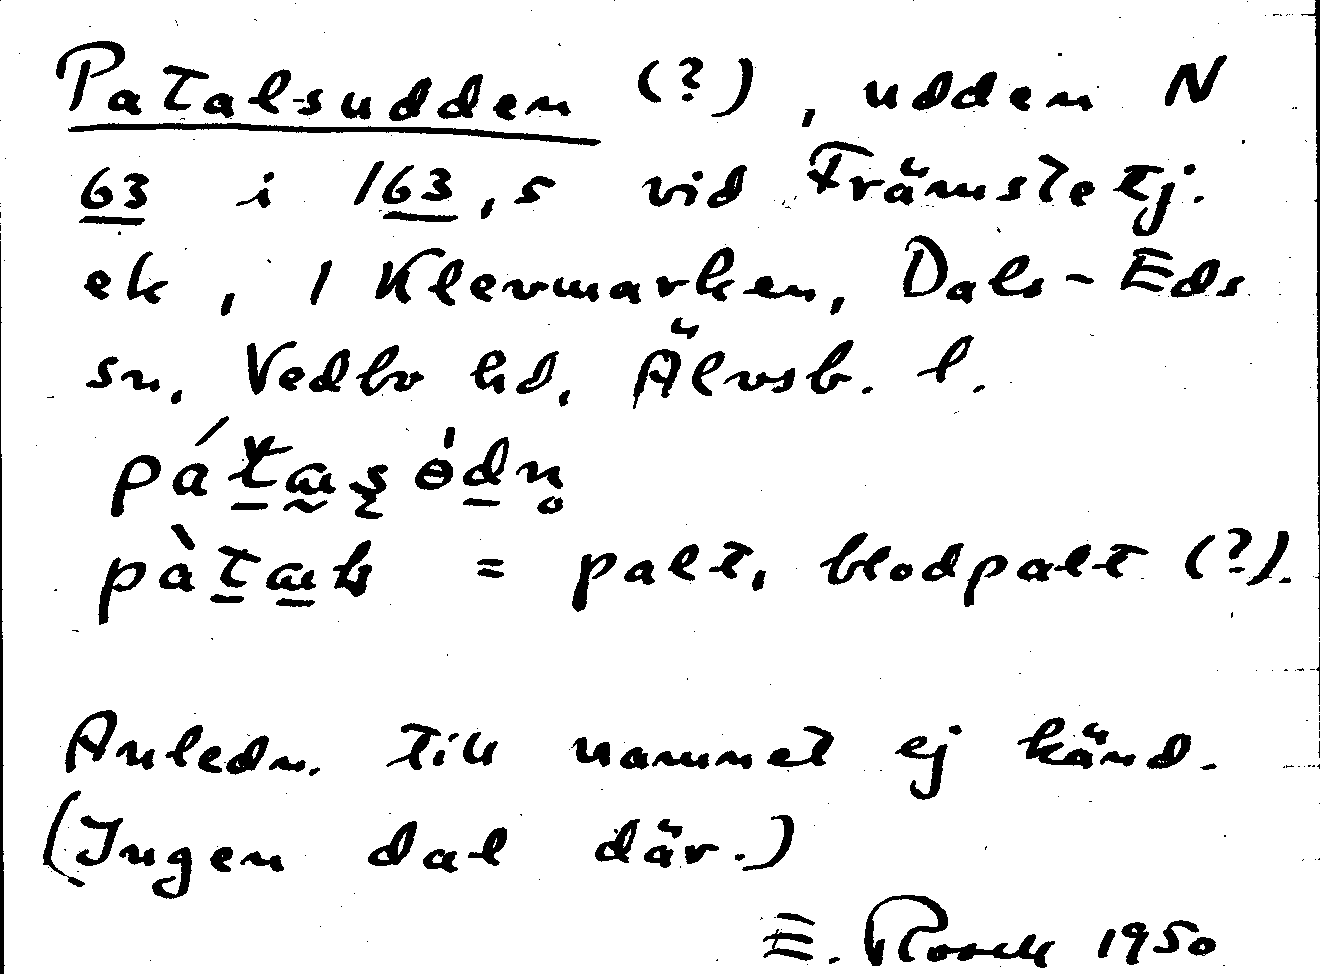 Patalsudden (?), udden N
63 i 163, s vid Främstetj.
ek, 1 Klevmarken, Dals-Eds
sn, Vedbo hd, Älvsb. l.
= palt, blodpalt (?).
Anledn. till namnet ej känd.
(Ingen dal där.)
E. Rosell 1950